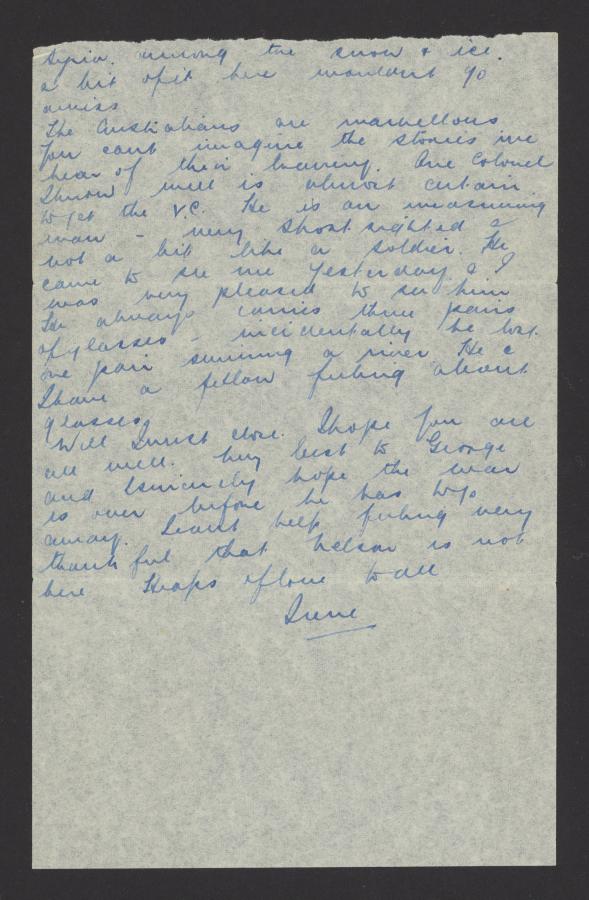 Syria. among the snow & ice.
a bit of it here wouldn't go
amiss
The Australians are marvellous
You cant imagine the stories we
hear of their bravery. One Colonel
I know well is almost certain
to get the V.C. He is an unassuming
man - very short sighted &
not a bit like a soldier. He
came to see me yesterday & I
was very pleased to see him
He always carries three pairs
of glasses - incidentally he lost
one pair swimming a river. He &
I have a fellow feeling about
glasses.
Well I must close. I hope you are
all well. My best to George
and I sincerely hope the war
is over before he has to go
away. I cant help feeling very
thankful that Nelson is not
here Heaps of love to all
Irene